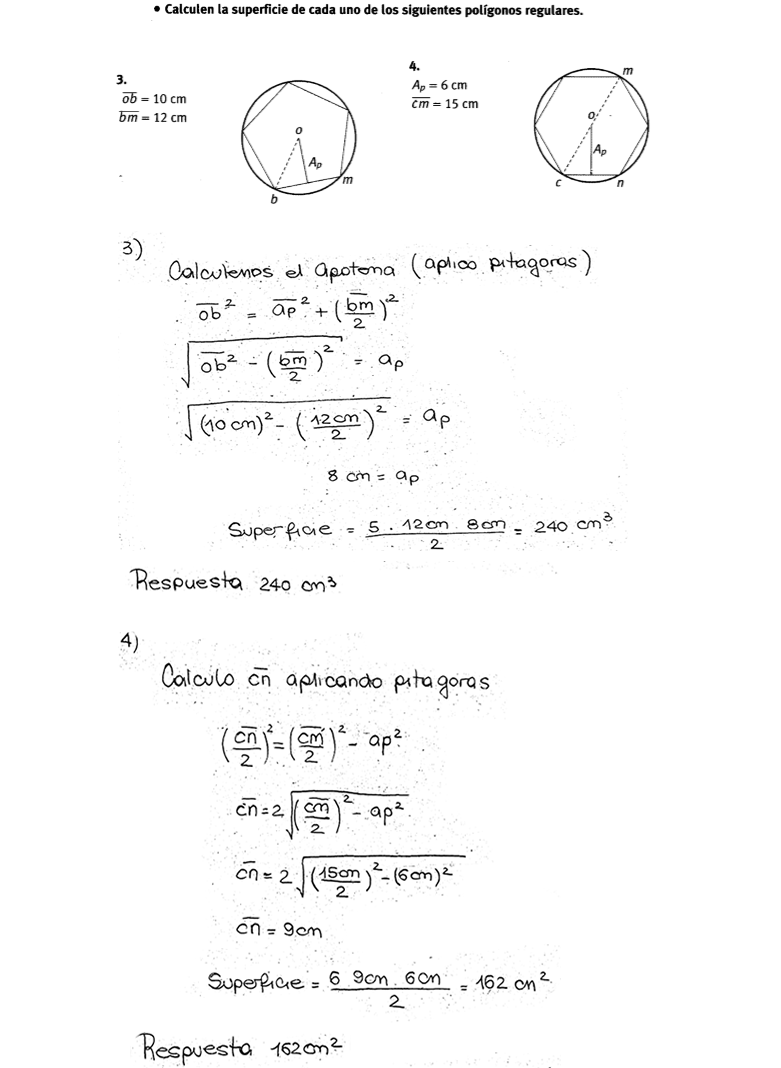 • Calculen la superficie de cada uno de los siguientes polígonos regulares.
3.
ob̅ = 10 cm
bm̅ = 12 cm
o
Ap
m
b
4.
Ap = 6 cm
cm̅ = 15 cm
m
o
Ap
c n
3)
Calculemos el apotema (aplico pitagoras)
ob̅² = ap̅² + (bm̅/2)²
√(ob̅² - (bm̅/2)²) = ap
√((10 cm)² - (12cm/2)²) = ap
8 cm = ap
Superficie = 5 . 12cm . 8cm / 2 = 240 cm³
Respuesta 240 cm³
4)
Calculo cn̅ aplicando pitagoras
(cn̅/2)² = (cm̅/2)² - ap²
cn̅ = 2√((cm̅/2)² - ap²)
cn̅ = 2√((15cm/2)² - (6cm)²)
cn̅ = 9cm
Superficie = 6 9cm . 6cm / 2 = 162 cm²
Respuesta 162cm²